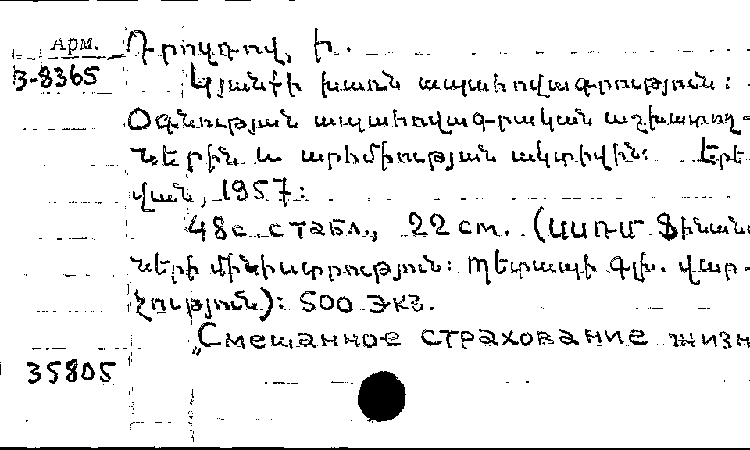 Арм.
Դրուգով, Ի.
3-8365
Կյանքի խառն ապահովագրություն:
Օգնության ապահովագրական աշխատող-
ներին և արհմիության ակտիվին: Երե-
վան, 1957:
48с. с табл., 22 см. (ՍՍՌՄ Ֆինանս-
ների մինիստրություն: Պետապի գլխ. վար-
չություն): 500 экз.
„Смешанное страхование жизн
35805